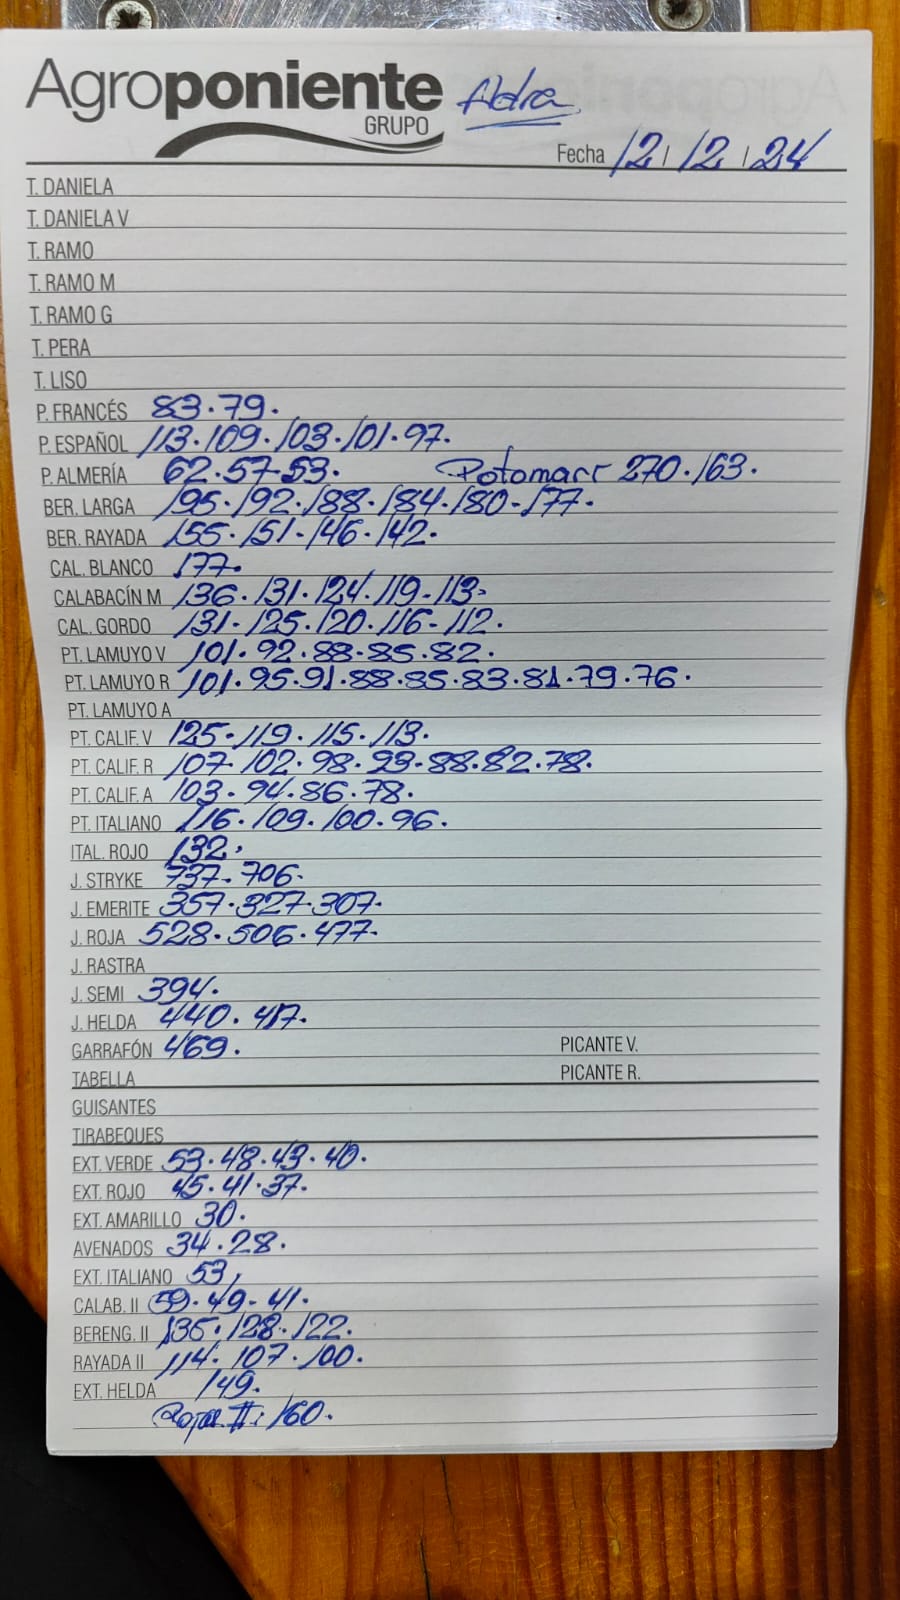 Agroponiente
GRUPO
Adra
Fecha 12/12/24
T. DANIELA
T. DANIELA V
T. RAMO
T. RAMO M
T. RAMO G
T. PERA
T. LISO
P. FRANCÉS 83.79.
P. ESPAÑOL 113.109.103.101.97.
P. ALMERÍA 62.57-53. Potomarr 270.163.
BER. LARGA 195.192.188.184.180-177.
BER. RAYADA 155.151-146.142.
CAL. BLANCO 177.
CALABACÍN M 136.131.124.119-113-
CAL. GORDO 131-125.120.116-112.
PT. LAMUYO V 101.92.88-85.82.
PT. LAMUYO R 101.95.91.88.85.83.81.79.76.
PT. LAMUYO A
PT. CALIF. V 125.119.115.113.
PT. CALIF. R 107.102-98.93-88.82.78.
PT. CALIF. A 103.94.86.78.
PT. ITALIANO 116.109.100.96.
ITAL. ROJO 132.
J. STRYKE 737-706.
J. EMERITE 357.327-307.
J. ROJA 528.506.477.
J. RASTRA
J. SEMI 394.
J. HELDA 440.417.
GARRAFÓN 469. PICANTE V.
TABELLA PICANTE R.
GUISANTES
TIRABEQUES
EXT. VERDE 53.48.43.40.
EXT. ROJO 45.41.37.
EXT. AMARILLO 30.
AVENADOS 34.28.
EXT. ITALIANO 53,
CALAB. II 59.49-41.
BERENG. II 135.128.122.
RAYADA II 114.107.100.
EXT. HELDA 149.
Rojas II: 160.